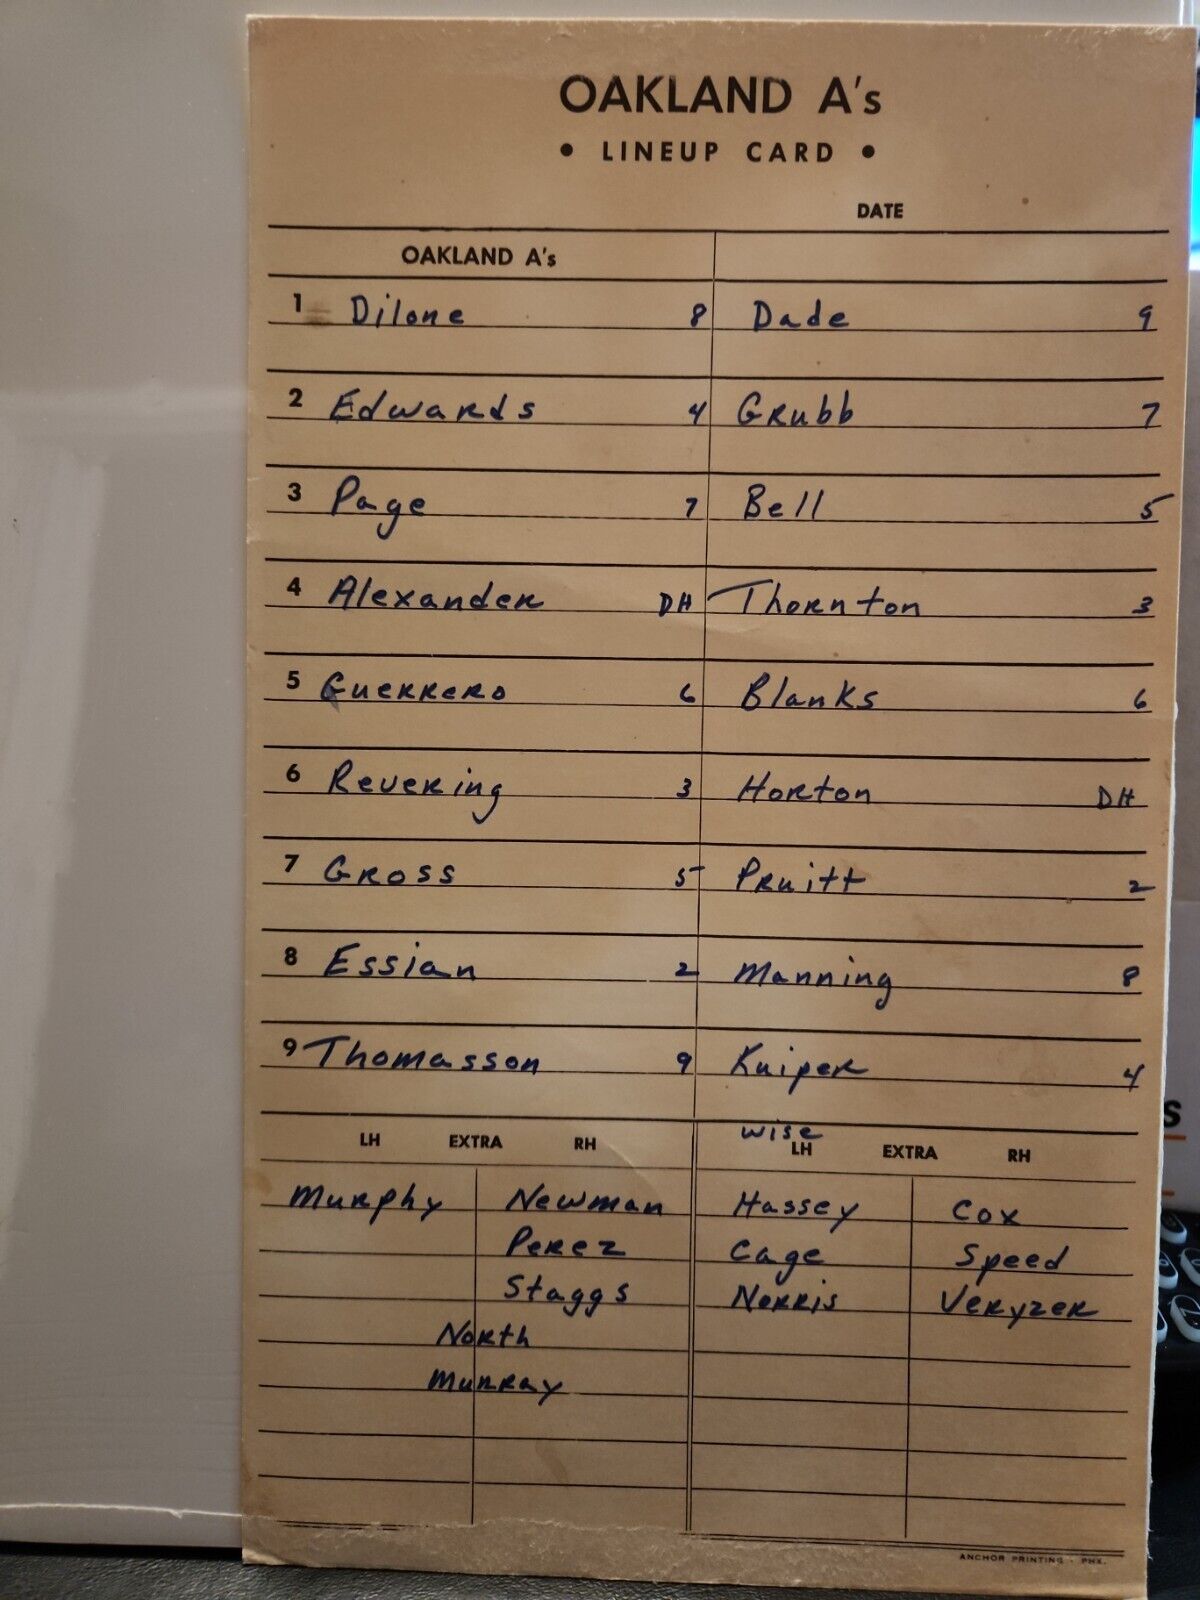 OAKLAND A's
• LINEUP CARD •
DATE
OAKLAND A's
1 Dilone 8 Dade 9
2 Edwards 4 Grubb 7
3 Page 7 Bell 5
4 Alexander DH Thornton 3
5 Guerrero 6 Blanks 6
6 Revering 3 Horton DH
7 Gross 5 Pruitt 2
8 Essian 2 Manning 8
9 Thomasson 9 Kuiper 4
Wise
LH EXTRA RH LH EXTRA RH
Murphy Newman Hassey Cox
Perez Cage Speed
Staggs Norris Veryzer
North
Murray
ANCHOR PRINTING · PHX.